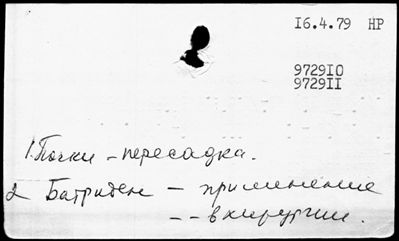 16.4.79 НР
972910
972911
1. Почки – пересадка.
2 Батриден – применение
– – в хирургии.